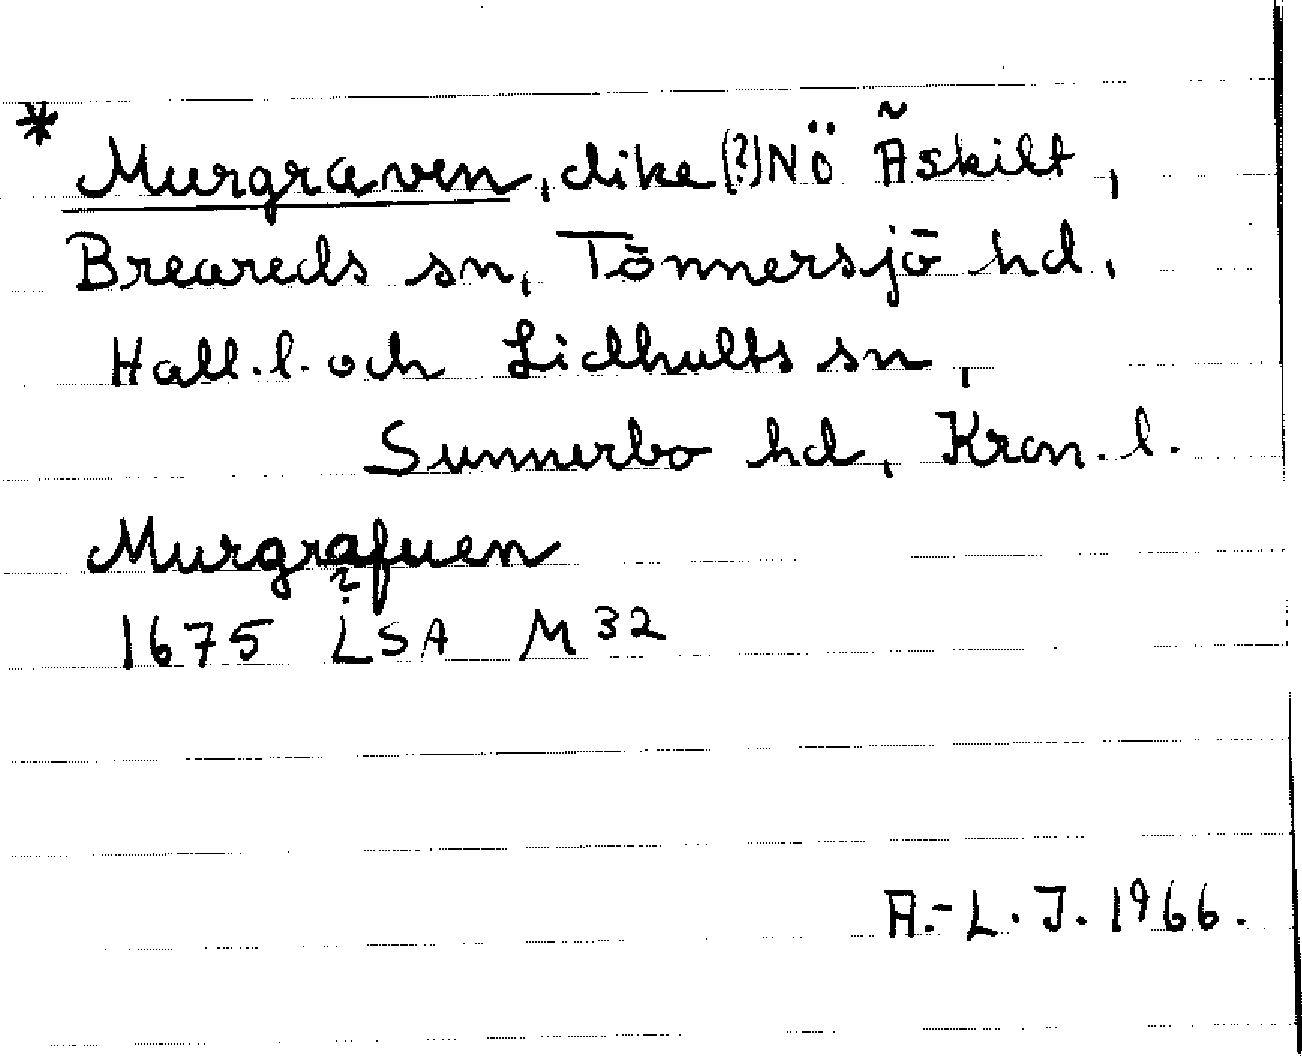 * Murgraven, dike (?) NÖ Äskilt,
Breareds sn, Tönnersjö hd,
Hall. l. och Lidhults sn,
Sunnerbo hd, Kron. l.
Murgrafuen
?
1675 LSA M 32
A.-L. J. 1966.